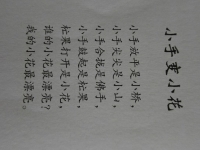 小手变小花
小手放平是小桥，
小手尖尖是小山，
小手合拢是佛手，
小手鼓起是芒果，
芒果打开是小花，
谁的小花最漂亮？
我的小花最漂亮。